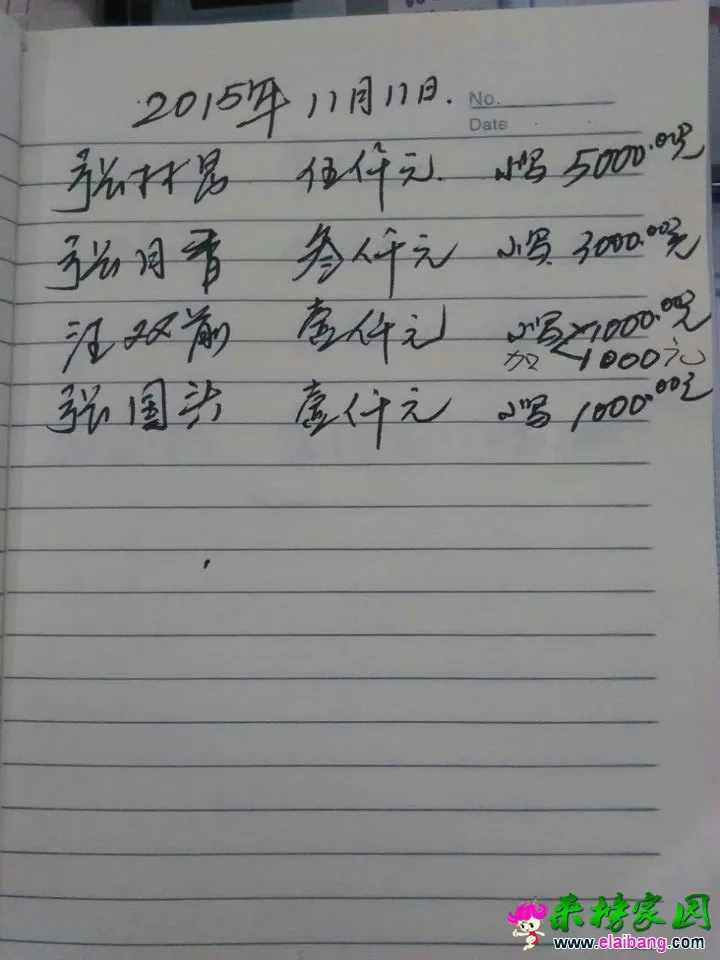 2015年11月11日.
No.
Date
张林昌 伍仟元. 小写 5000.00元
张月青 叁仟元 小写 3000.00元
汪双前 壹仟元 小写 1000.00元
加 1000元
张国兴 壹仟元 小写 1000.00元
来榜家园
www.elaibang.com